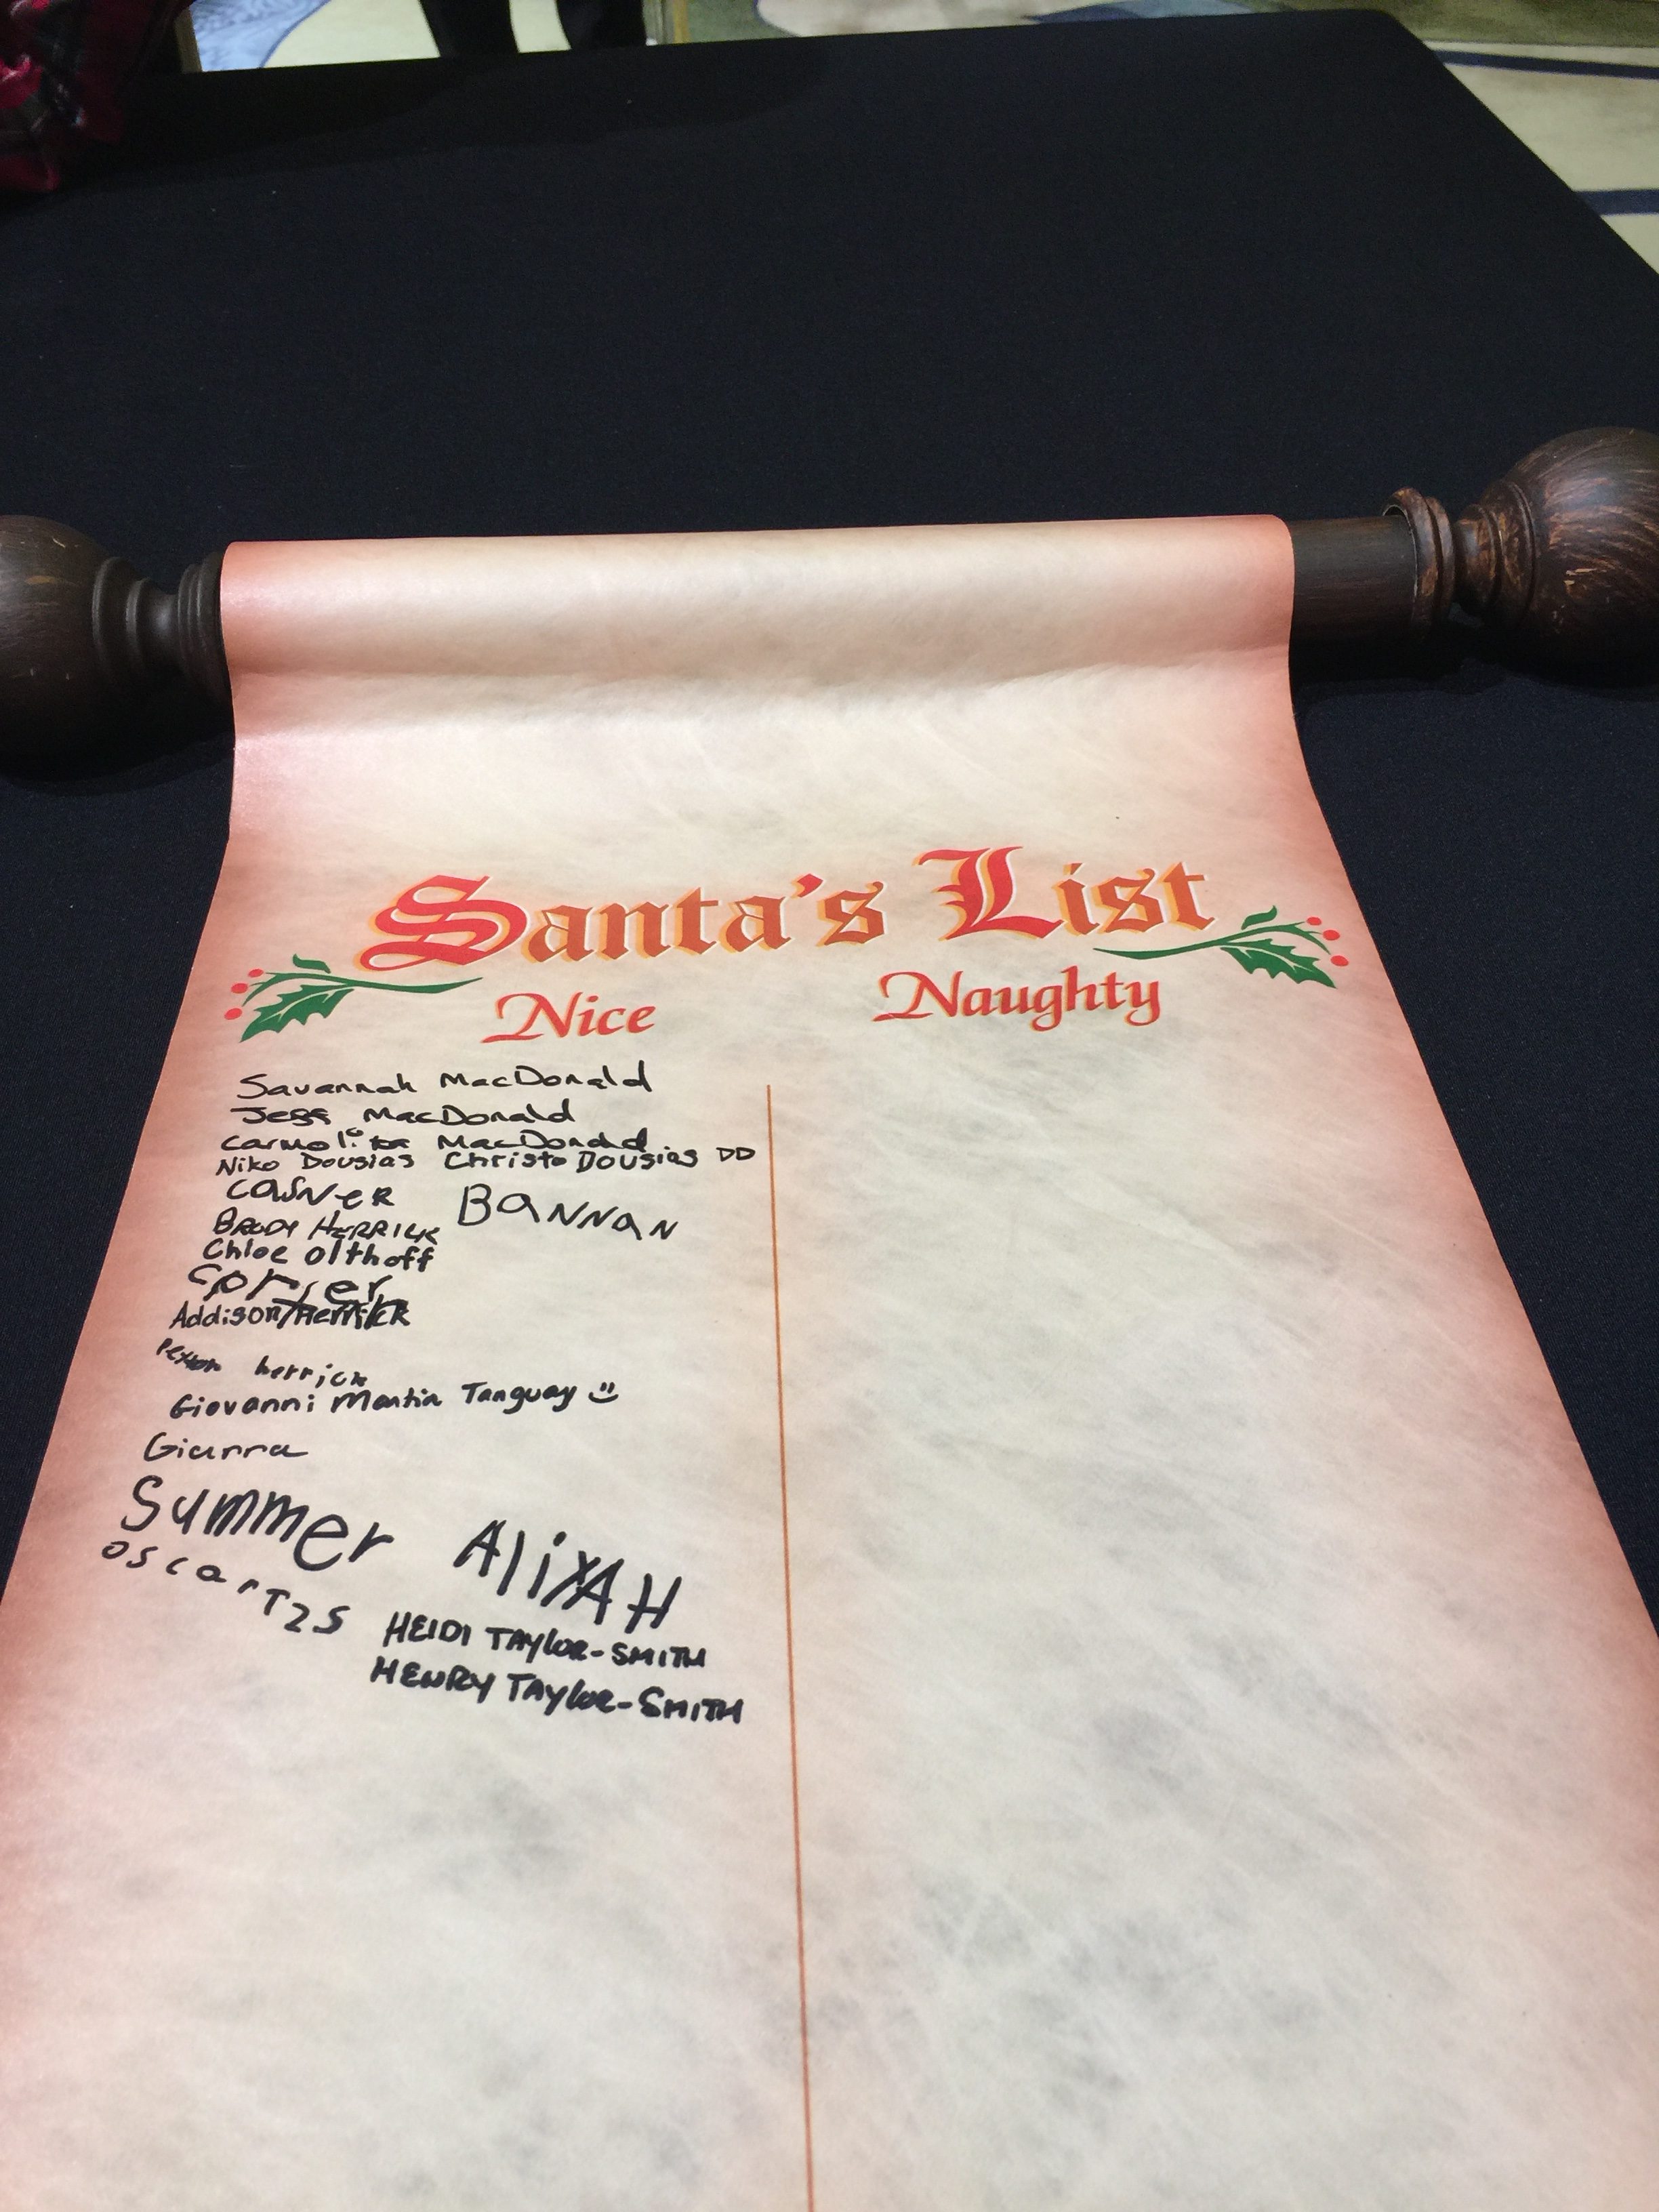 Santa's List
Nice Naughty
Savannah MacDonald
Jess MacDonald
MacDonald
Niko Dousias Christo Dousias DD
BANNAN
BRODY HERRICK
Chloe Olthoff
Addison Herrick
Peyton herrick
Giovanni Martin Tanguay
Gianna
Summer AliXAH
oscarT25
HEIDI TAYlOR-SMITH
HENRY TAYlOR-SMITH